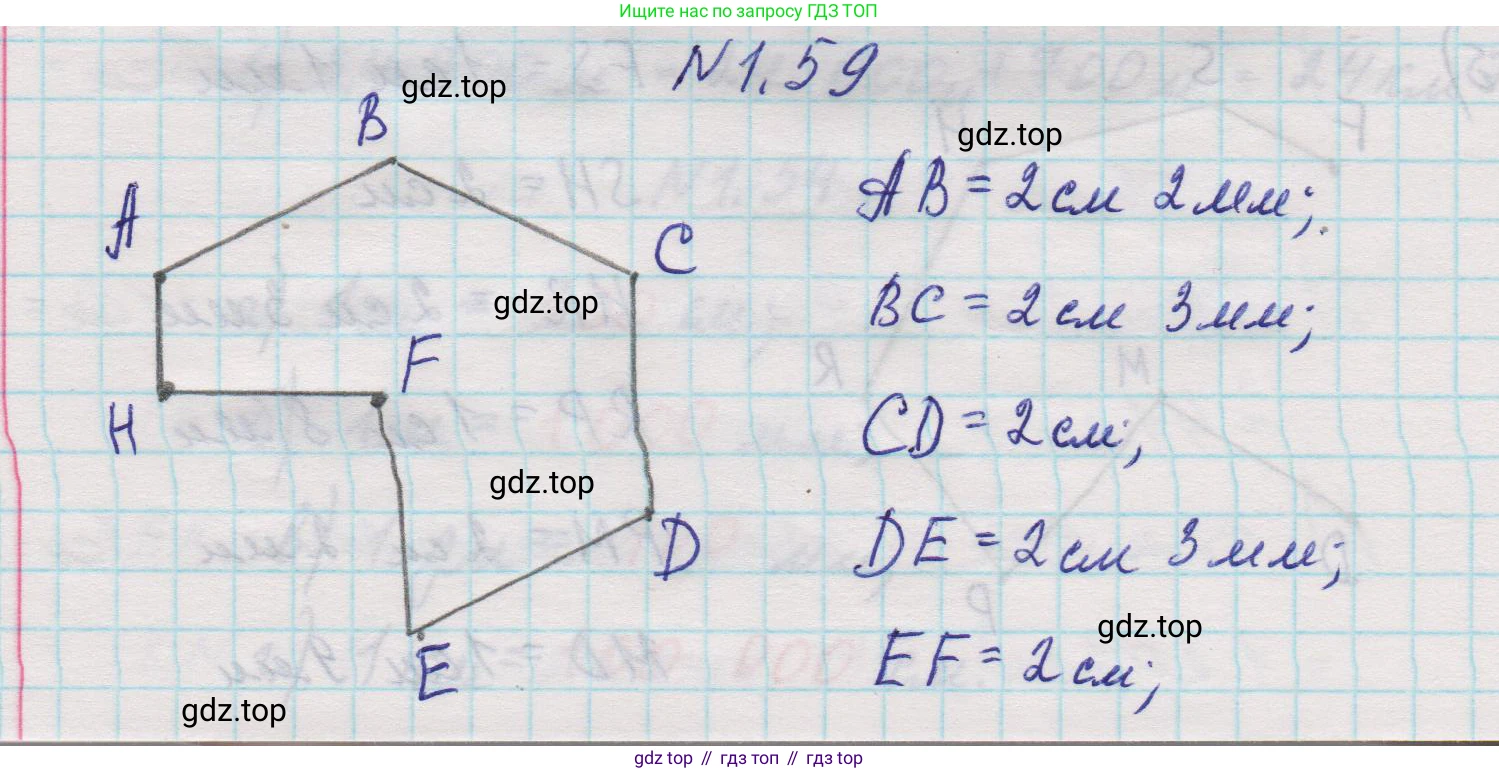 Ищите нас по запросу ГДЗ ТОП
N 1.59
gdz.top
B
gdz.top
A
AB = 2 см 2 мм;
C
gdz.top
BC = 2 см 3 мм;
F
H
CD = 2 см;
gdz.top
D
DE = 2 см 3 мм;
gdz.top
E
EF = 2 см;
gdz.top
gdz top // гдз топ // gdz top